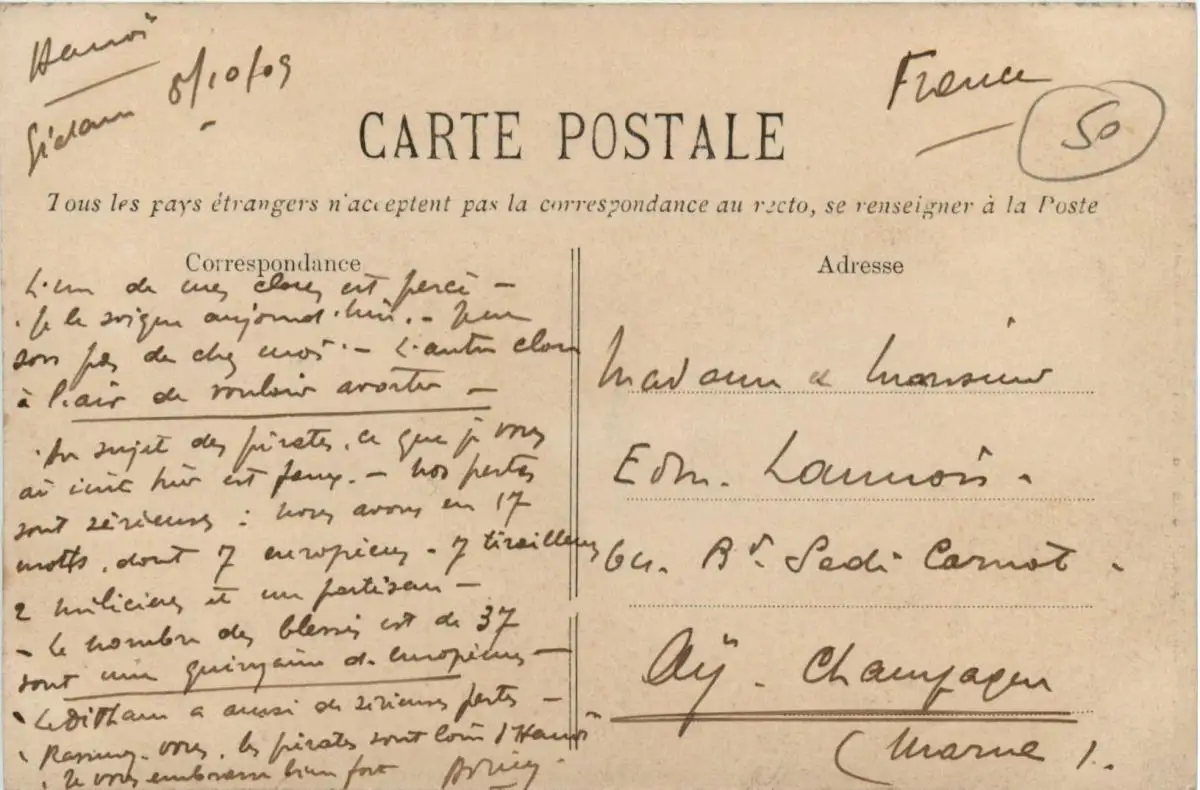 Hanoï
Gialam 8/10/09
France
50
CARTE POSTALE
Tous les pays étrangers n'acceptent pas la correspondance au recto, se renseigner à la Poste
Correspondance
L'un de mes clous est percé –
Je le soigne aujourd'hui. – Je ne
sors pas de chez moi – L'autre clou
à l'air de vouloir avorter –
Au sujet des pirates, ce que je vous
ai écrit hier est faux. – Nos pertes
sont sérieuses : nous avons eu 17
morts, dont 7 européens – 7 tirailleurs
2 miliciens et un partisan –
– Le nombre des blessés est de 37
dont une quinzaine d'européens –
Le Ditham a aussi de sérieuses pertes –
Rassurez-vous, les pirates sont loin d'Hanoï
Je vous embrasse bien fort
Adresse
Madame & Monsieur
Edm. Launois.
64. Bd. Sadi Carnot.
Aÿ. Champagne
(Marne).